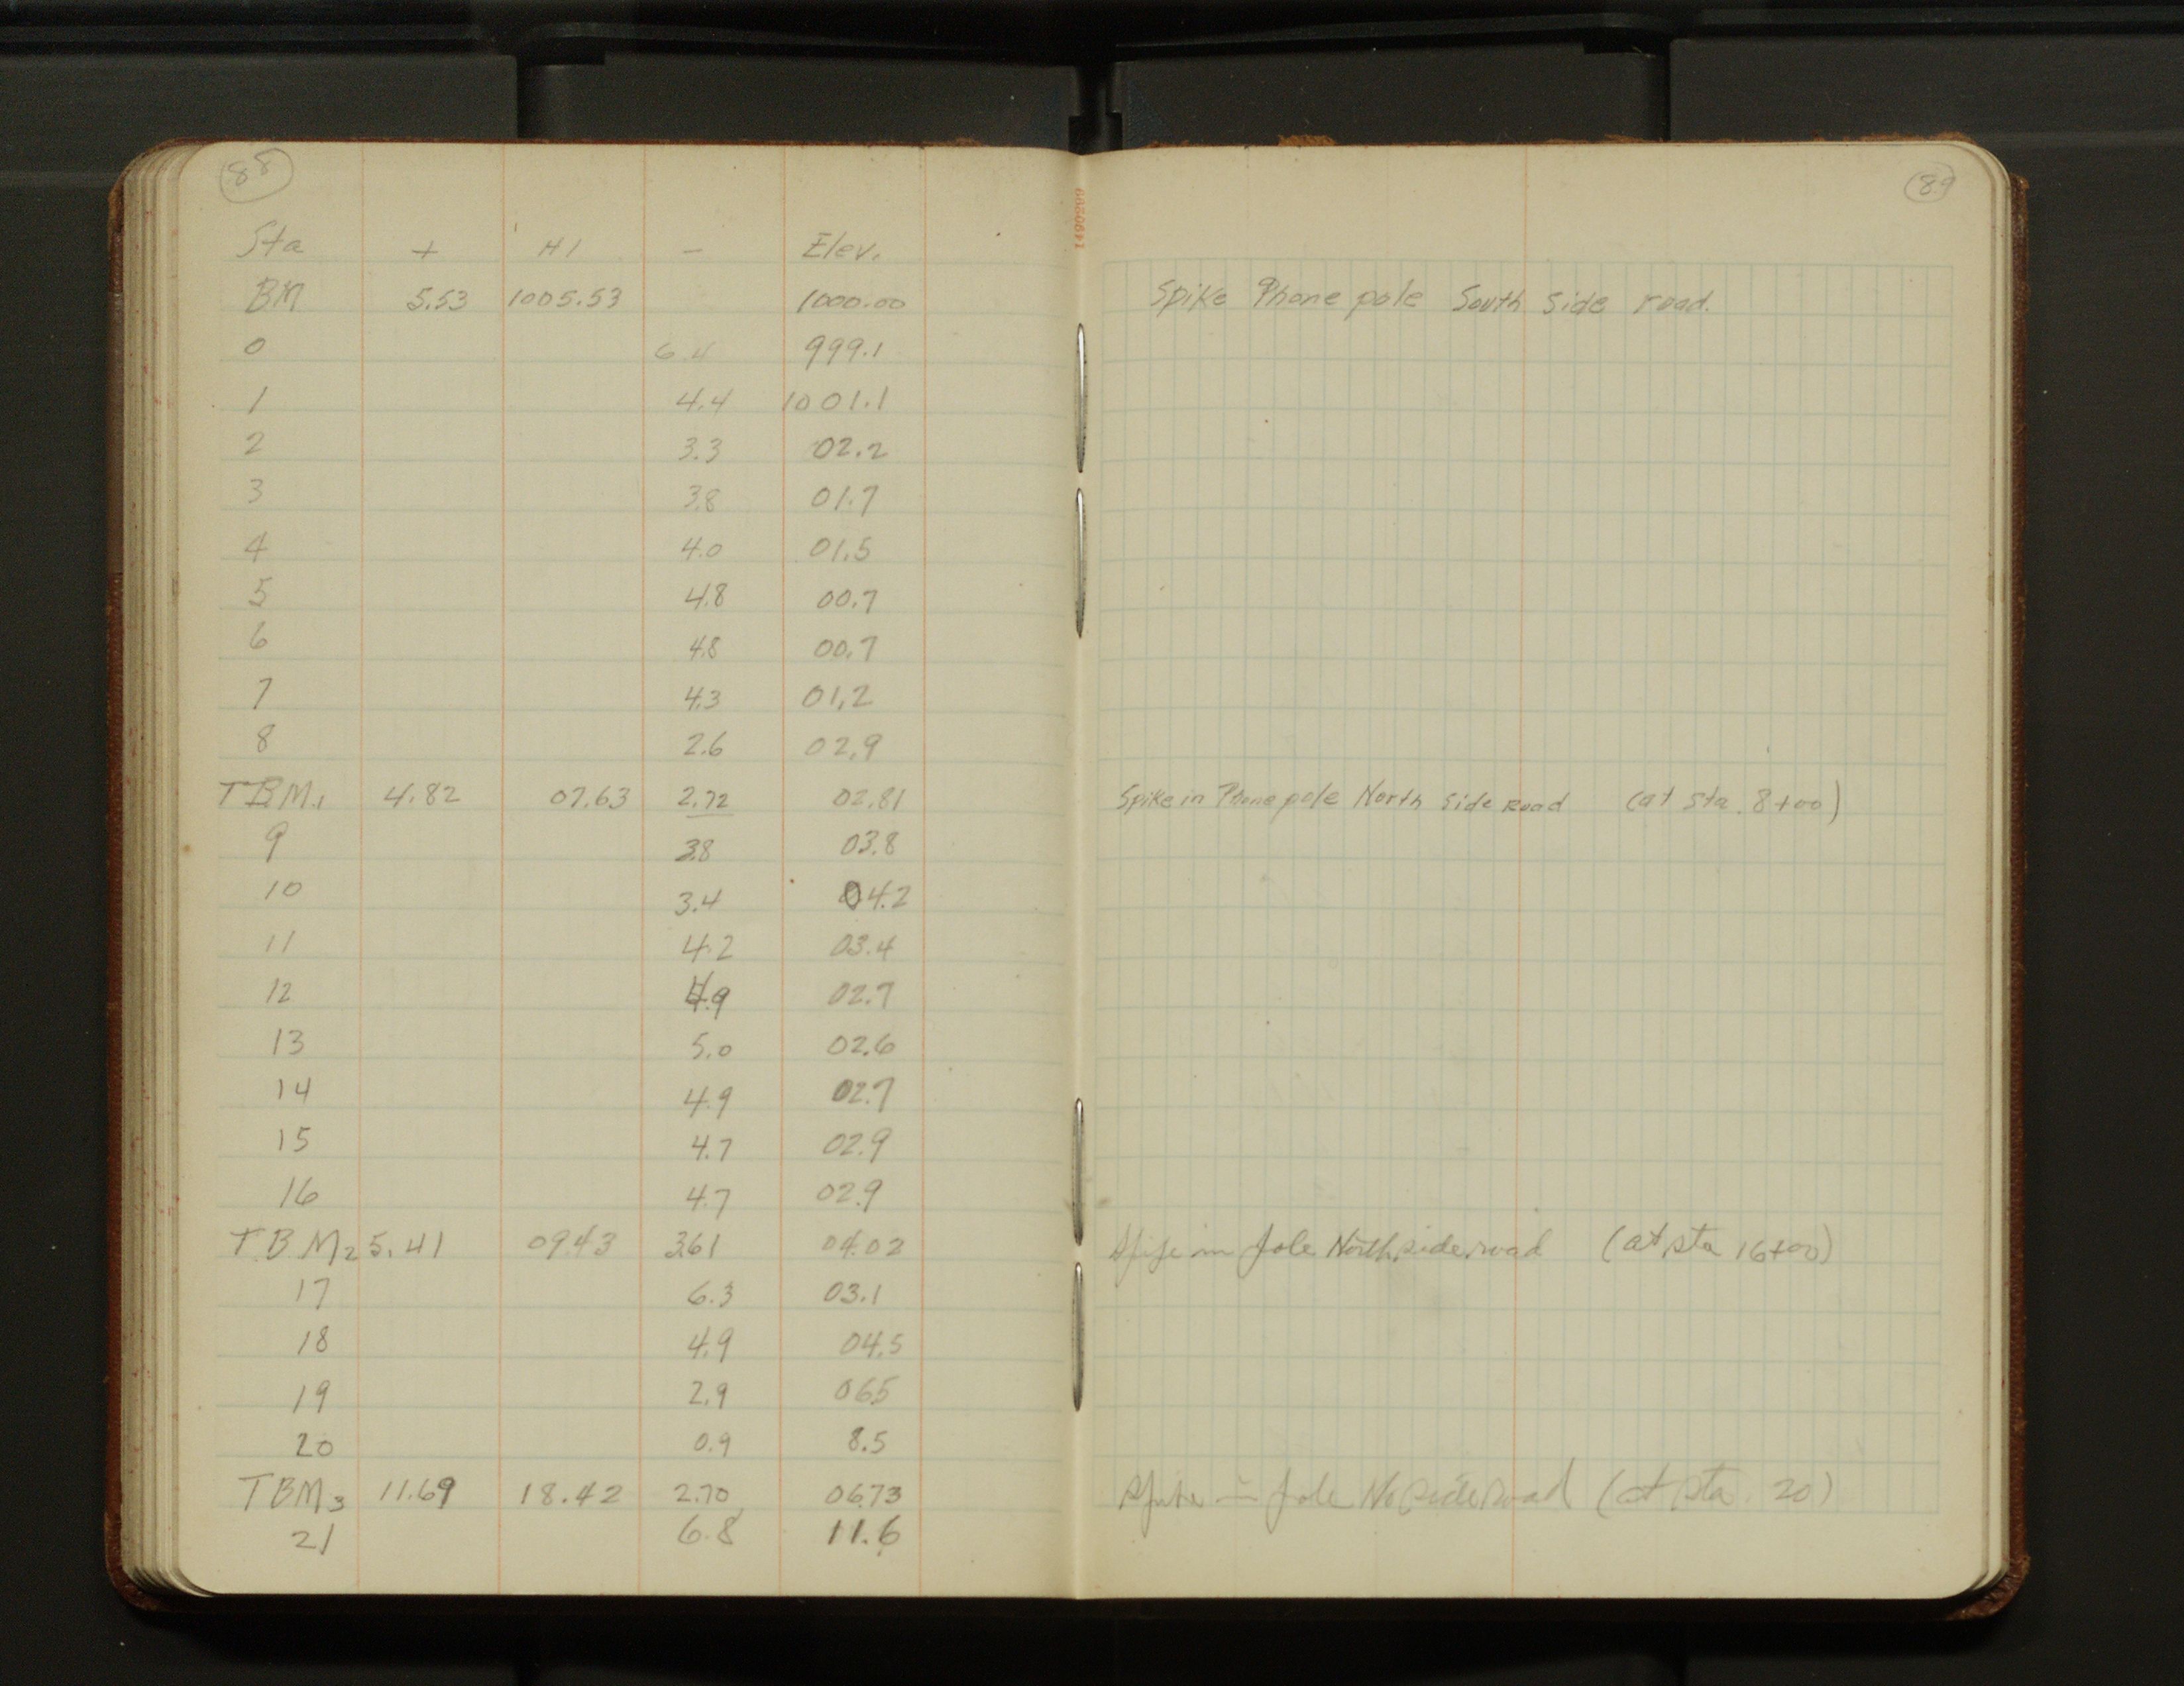 88
Sta + HI - Elev.
BM 5.53 1005.53 1000.00
0 6.4 999.1
1 4.4 1001.1
2 3.3 02.2
3 3.8 01.7
4 4.0 01.5
5 4.8 00.7
6 4.8 00.7
7 4.3 01.2
8 2.6 02.9
TBM.1 4.82 07.63 2.72 02.81
9 3.8 03.8
10 3.4 04.2
11 4.2 03.4
12 4.9 02.7
13 5.0 02.6
14 4.9 02.7
15 4.7 02.9
16 4.7 02.9
T.B M2 5.41 09.43 3.61 04.02
17 6.3 03.1
18 4.9 04.5
19 2.9 06.5
20 0.9 8.5
TBM3 11.69 18.42 2.70 06.73
21 6.8 11.6
1490299
89
Spike Phone pole South Side road.
Spike in Phone pole North Side Road (at Sta. 8+00)
Spike in pole North side road (at sta 16+00)
Spike in pole No side road (at sta. 20)